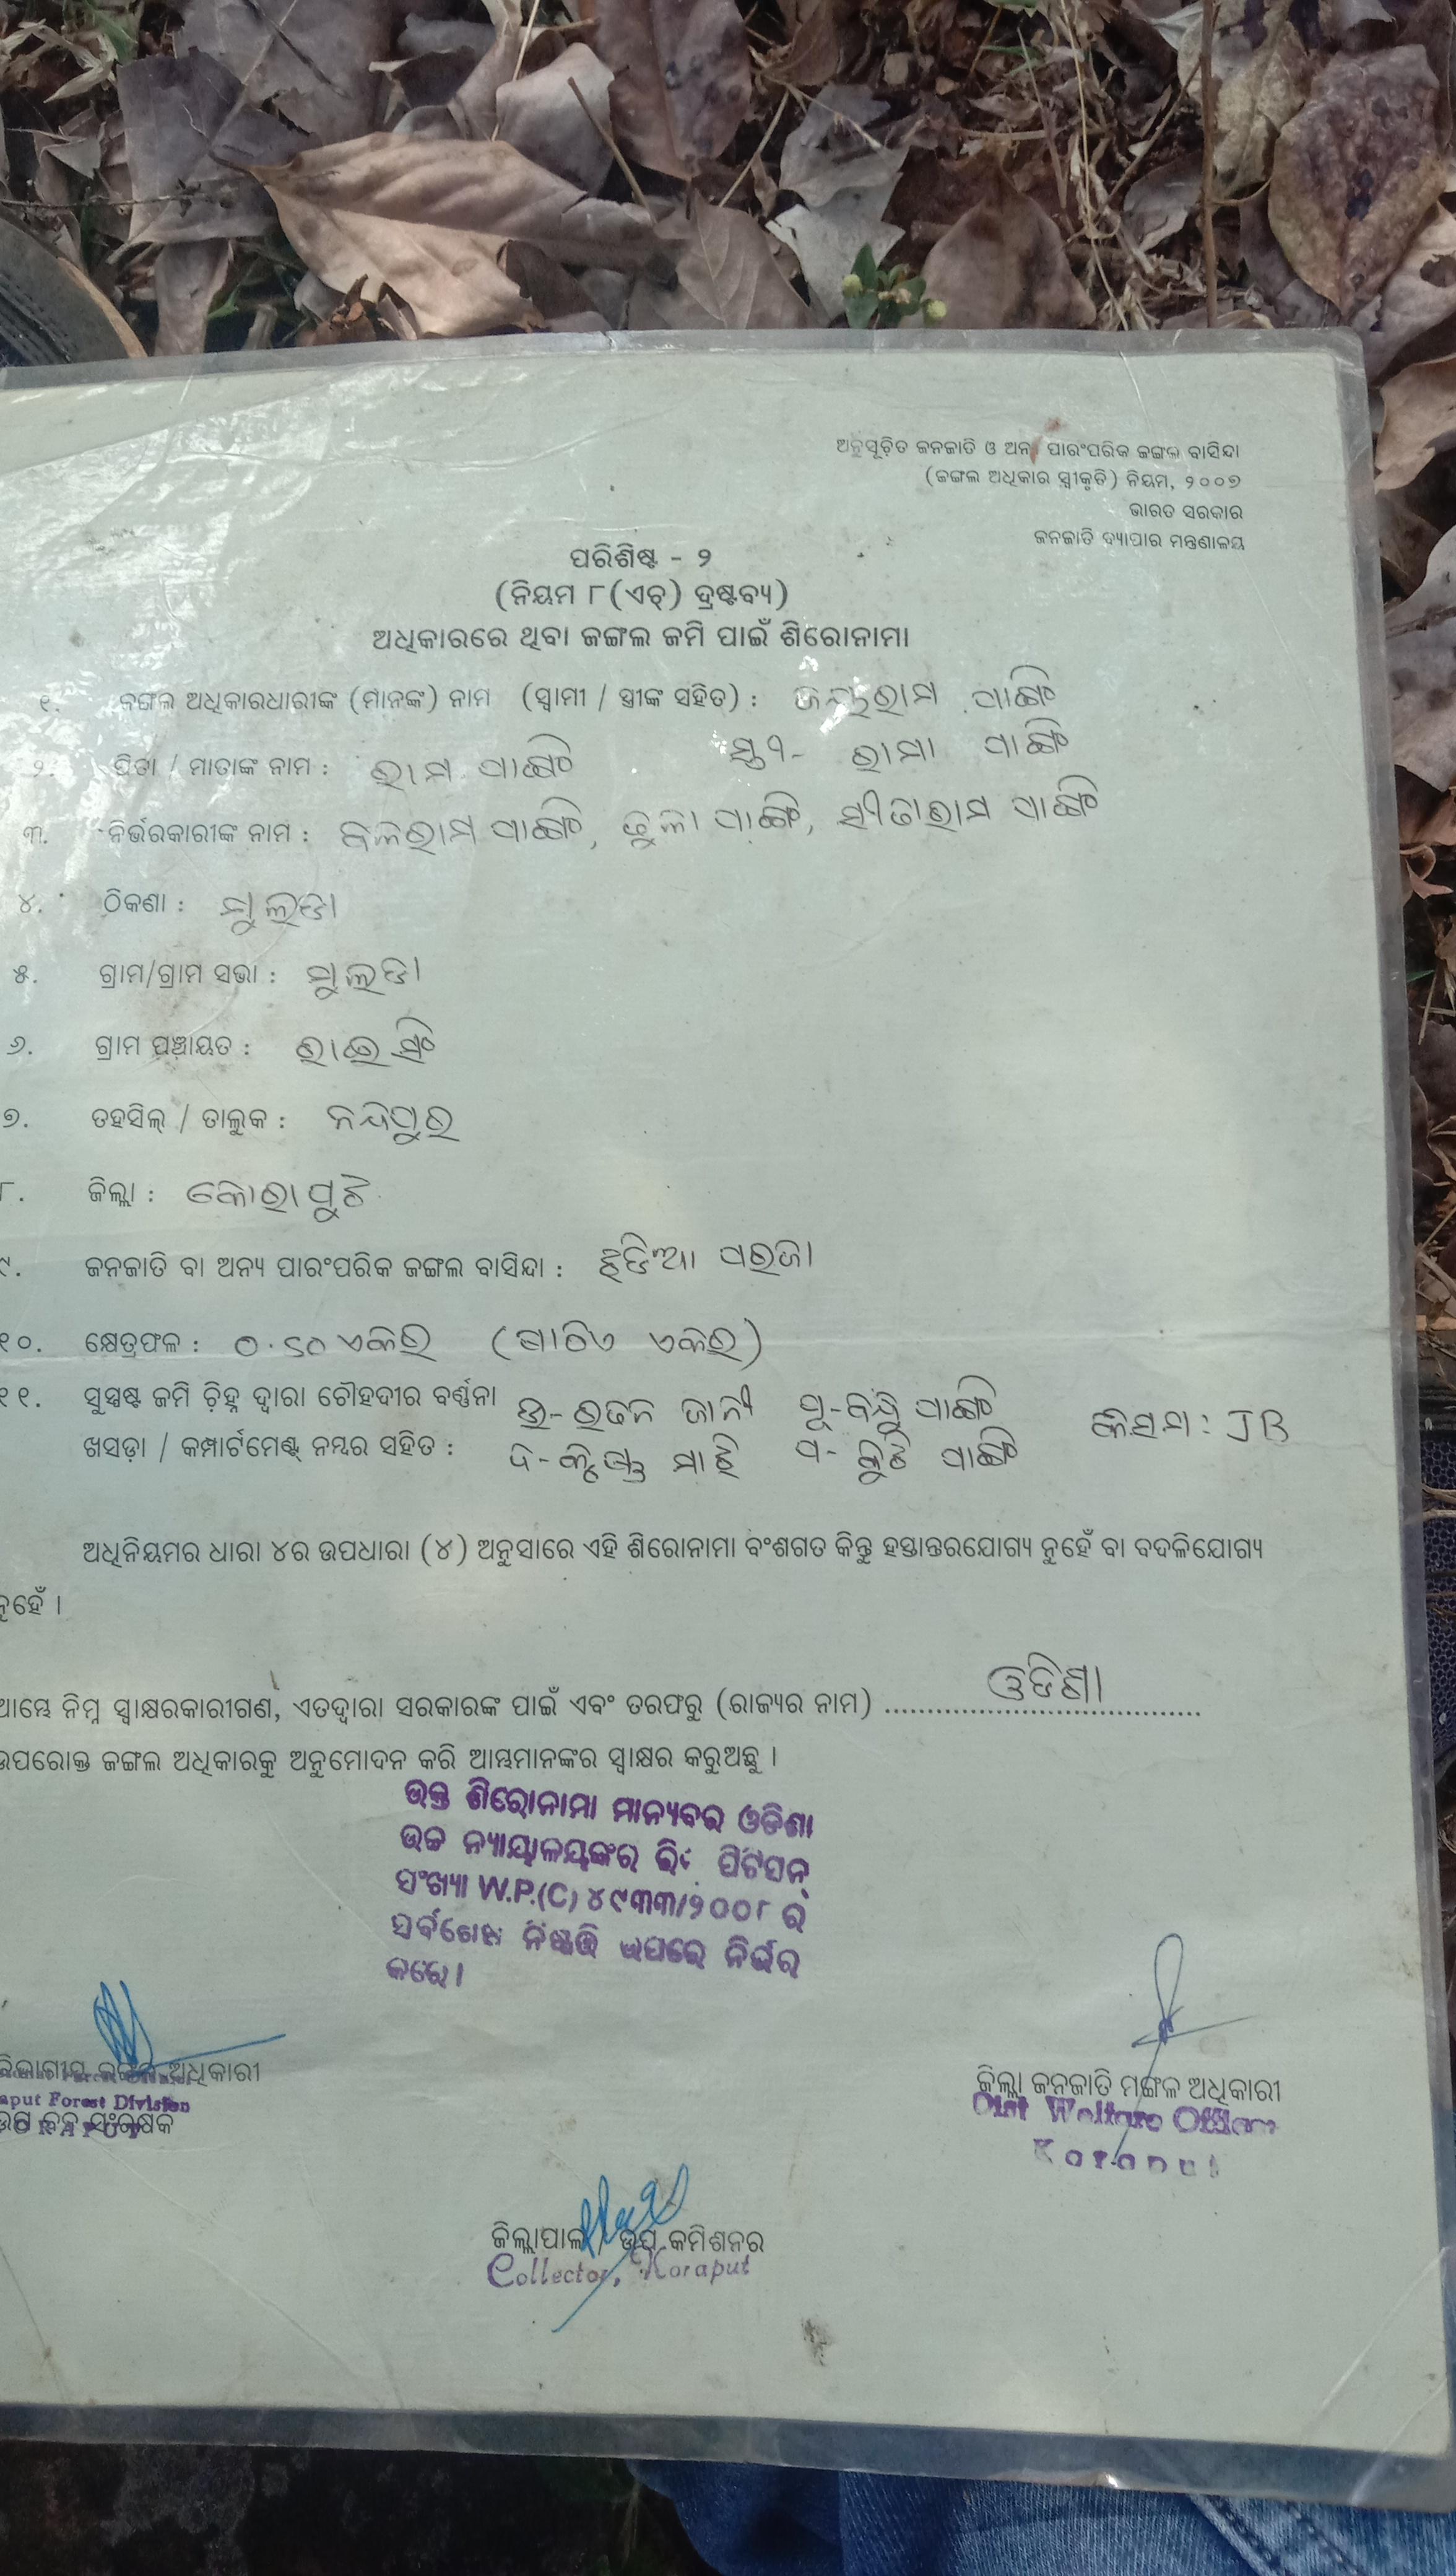 ଅନୁସୂଚିତ ଜନଜାତି ଓ ଅନ୍ୟ ପାରଂପରିକ ଜଙ୍ଗଲ ବାସିନ୍ଦା
(ଜଙ୍ଗଲ ଅଧିକାର ସ୍ୱୀକୃତି) ନିୟମ, ୨୦୦୭
ଭାରତ ସରକାର
ଜନଜାତି ବ୍ୟାପାର ମନ୍ତ୍ରଣାଳୟ
ପରିଶିଷ୍ଟ - ୨
(ନିୟମ ୮(ଏଚ୍) ଦ୍ରଷ୍ଟବ୍ୟ)
ଅଧିକାରରେ ଥିବା ଜଙ୍ଗଲ ଜମି ପାଇଁ ଶିରୋନାମା
୧. ଜଙ୍ଗଲ ଅଧିକାରଧାରୀଙ୍କ (ମାନଙ୍କ) ନାମ (ସ୍ୱାମୀ / ସ୍ତ୍ରୀଙ୍କ ସହିତ) : ପାଙ୍ଗି
ସ୍ତ୍ରୀ- ରାମା ପାଙ୍ଗି
୨. ପିତା / ମାତାଙ୍କ ନାମ : ରାମ ପାଙ୍ଗି
୩. ନିର୍ଭରକାରୀଙ୍କ ନାମ : ବଳରାମ ପାଙ୍ଗି, ତୁଳା ପାଙ୍ଗି, ସୀତାରାମ ପାଙ୍ଗି
୪. ଠିକଣା : ମୁଲଡା
୫. ଗ୍ରାମ/ଗ୍ରାମ ସଭା : ମୁଲଡା
୬. ଗ୍ରାମ ପଞ୍ଚାୟତ : ରାଇସିଂ
୭. ତହସିଲ୍ / ତାଲୁକ : ନନ୍ଦପୁର
୮. ଜିଲ୍ଲା : କୋରାପୁଟ
୯. ଜନଜାତି ବା ଅନ୍ୟ ପାରଂପରିକ ଜଙ୍ଗଲ ବାସିନ୍ଦା : ଝଡିଆ ପରଜା
୧୦. କ୍ଷେତ୍ରଫଳ : ୦.୫୦ ଏକର ( ଏକର)
୧୧. ସୁସ୍ପଷ୍ଟ ଜମି ଚ଼ିହ୍ନ ଦ୍ୱାରା ଚୌହଦୀର ବର୍ଣ୍ଣନା ଉ- ରତନ ଜାନୀ ପୂ-ବନ୍ଧୁ ପାଙ୍ଗି କିସମ : JB
ଖସଡ଼ା / କମ୍ପାର୍ଟମେଣ୍ଟ ନମ୍ବର ସହିତ : ଦ- ପ- ପାଙ୍ଗି
ଅଧିନିୟମର ଧାରା ୪ର ଉପଧାରା (୪) ଅନୁସାରେ ଏହି ଶିରୋନାମା ବଂଶଗତ କିନ୍ତୁ ହସ୍ତାନ୍ତରଯୋଗ୍ୟ ନୁହେଁ ବା ବଦଳିଯୋଗ୍ୟ
ନୁହେଁ ।
ଆମ୍ଭେ ନିମ୍ନ ସ୍ୱାକ୍ଷରକାରୀଗଣ, ଏତଦ୍ୱାରା ସରକାରଙ୍କ ପାଇଁ ଏବଂ ତରଫରୁ (ରାଜ୍ୟର ନାମ) ଓଡିଶା
ଉପରୋକ୍ତ ଜଙ୍ଗଲ ଅଧିକାରକୁ ଅନୁମୋଦନ କରି ଆମ୍ଭମାନଙ୍କର ସ୍ୱାକ୍ଷର କରୁଅଛୁ ।
ଉକ୍ତ ଶିରୋନାମା ମାନ୍ୟବର ଓଡିଶା
ଉଚ୍ଚ ନ୍ୟାୟାଳୟଙ୍କର ରିଟ ପିଟିସନ୍
ସଂଖ୍ୟା W.P.(C) ୪୯୩୩/୨୦୦୮ ର
ସର୍ବଶେଷ ନିଷ୍ପତ୍ତି ଉପରେ ନିର୍ଭର
କରେ।
ବିଭାଗୀୟ ଜଙ୍ଗଲ ଅଧିକାରୀ
aput Forest Division
ଉପ ବନ ସଂରକ୍ଷକ
ଜିଲ୍ଲା ଜନଜାତି ମଙ୍ଗଳ ଅଧିକାରୀ
Dist Welfare Officer
Koraput
ଜିଲ୍ଲାପାଳ / ଉପ କମିଶନର
Collector, Koraput